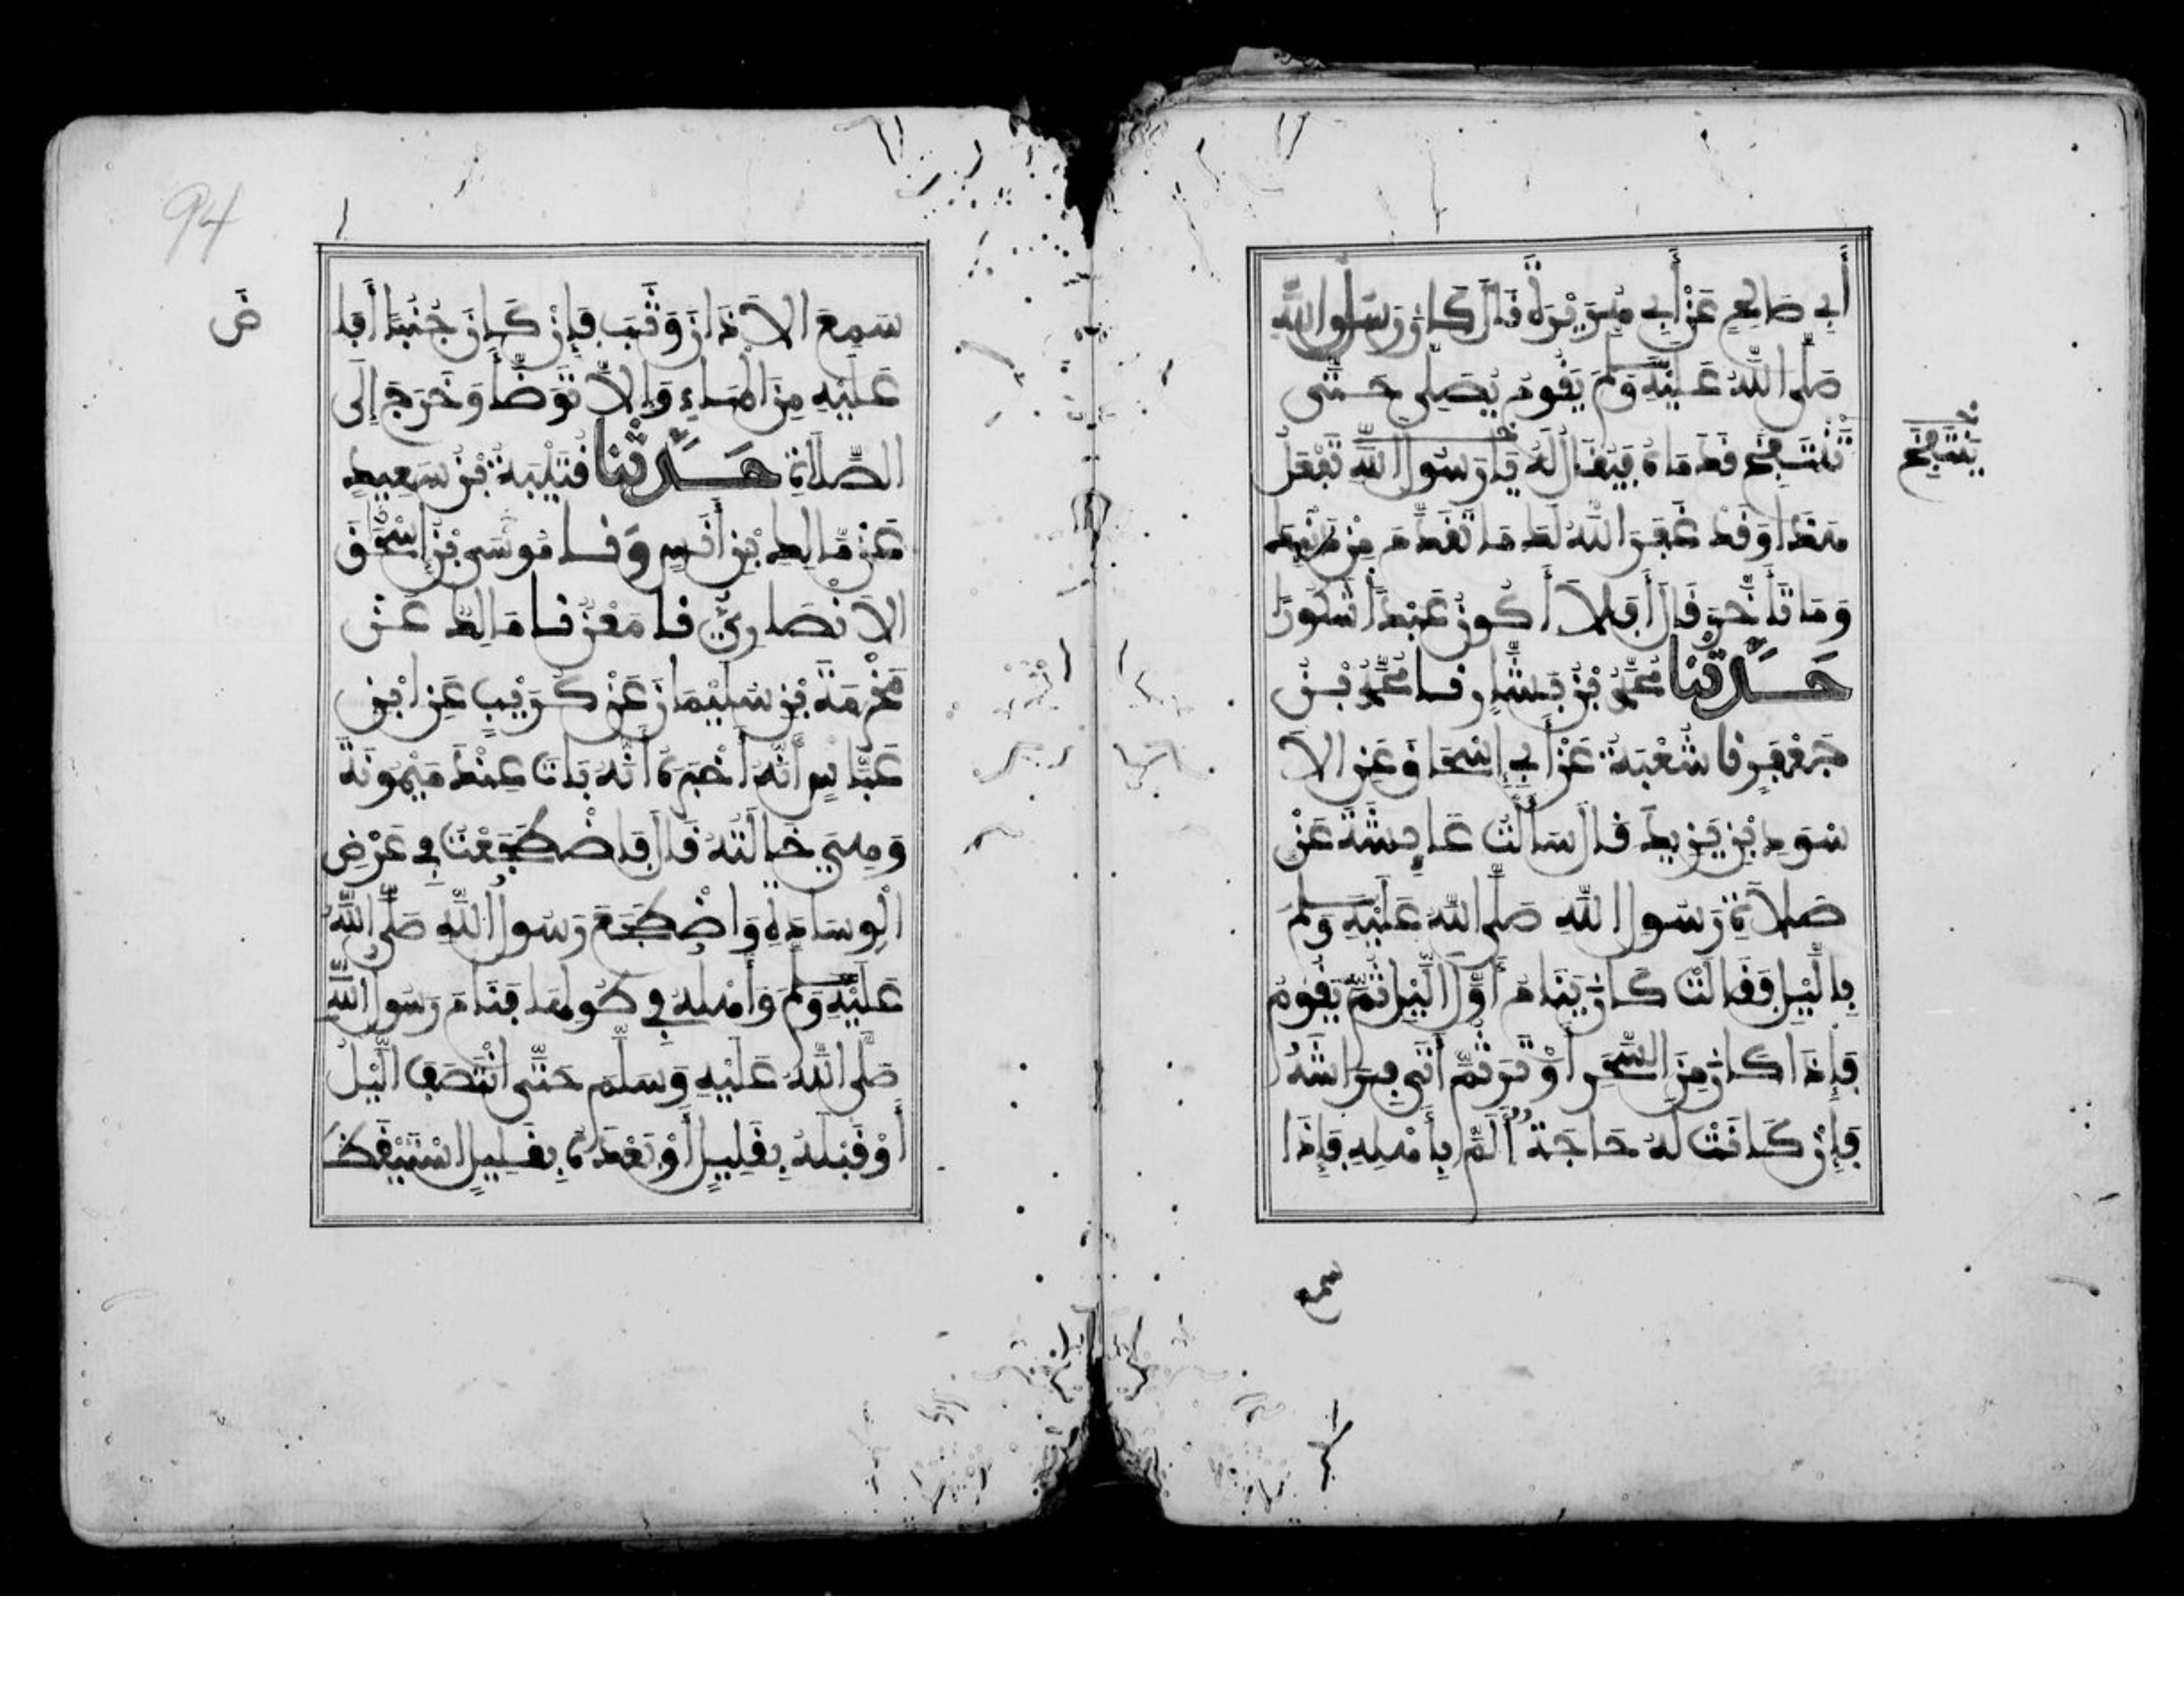 أَبِي صَالِحٍ عَنْ أَبِي هُرَيْرَةَ قَالَ كَانَ رَسُولُ اللَّهِ
صَلَّى اللَّهُ عَلَيْهِ وَسَلَّمَ يَقُومُ يُصَلِّي حَتَّى
تَنْتَفِخَ قَدَمَاهُ فَيُقَالُ لَهُ يَا رَسُولَ اللَّهِ تَفْعَلُ
هَذَا وَقَدْ غَفَرَ اللَّهُ لَكَ مَا تَقَدَّمَ مِنْ ذَنْبِكَ
وَمَا تَأَخَّرَ قَالَ أَفَلَا أَكُونُ عَبْدًا شَكُورًا
حَدَّثَنَا مُحَمَّدُ بْنُ بَشَّارٍ نا مُحَمَّدُ بْنُ
جَعْفَرٍ نا شُعْبَةُ عَنْ أَبِي إِسْحَاقَ عَنِ الْأَ
سْوَدِ بْنِ يَزِيدَ قَالَ سَأَلْتُ عَايِشَةَ عَنْ
صَلَاةِ رَسُولِ اللَّهِ صَلَّى اللَّهُ عَلَيْهِ وَسَلَّمَ
بِاللَّيْلِ فَقَالَتْ كَانَ يَنَامُ أَوَّلَ اللَّيْلِ ثُمَّ يَقُومُ
فَإِذَا كَانَ مِنَ السَّحَرِ أَوْتَرَ ثُمَّ أَتَى فِرَاشَهُ
فَإِنْ كَانَتْ لَهُ حَاجَةٌ أَلَمَّ بِأَهْلِهِ فَإِذَا
يَنْتَفِخَ
سمع
94
سَمِعَ الْأَذَانَ وَثَبَ فَإِنْ كَانَ جُنُبًا أَفَا
ضَ
عَلَيْهِ مِنَ الْمَاءِ وَإِلَّا تَوَضَّأَ وَخَرَجَ إِلَى
الصَّلَاةِ حَدَّثَنَا قُتَيْبَةُ بْنُ سَعِيدٍ
عَنْ مَالِكِ بْنِ أَنَسٍ وَنا مُوسَى بْنُ إِسْحَقَ
الْأَنْصَارِيُّ نا مَعْنٌ نا مَالِكٌ عَنْ
مَخْرَمَةَ بْنِ سُلَيْمَانَ عَنْ كُرَيْبٍ عَنِ ابْنِ
عَبَّاسٍ أَنَّهُ أَخْبَرَهُ أَنَّهُ بَاتَ عِنْدَ مَيْمُونَةَ
وَهِيَ خَالَتُهُ قَالَ فَاضْطَجَعْتُ فِي عَرْضِ
الْوِسَادَةِ وَاضْطَجَعَ رَسُولُ اللَّهِ صَلَّى اللَّهُ
عَلَيْهِ وَسَلَّمَ وَأَهْلُهُ فِي طُولِهَا فَنَامَ رَسُولُ اللَّهِ
صَلَّى اللَّهُ عَلَيْهِ وَسَلَّمَ حَتَّى انْتَصَفَ اللَّيْلُ
أَوْ قَبْلَهُ بِقَلِيلٍ أَوْ بَعْدَهُ بِقَلِيلٍ اسْتَيْقَظَ